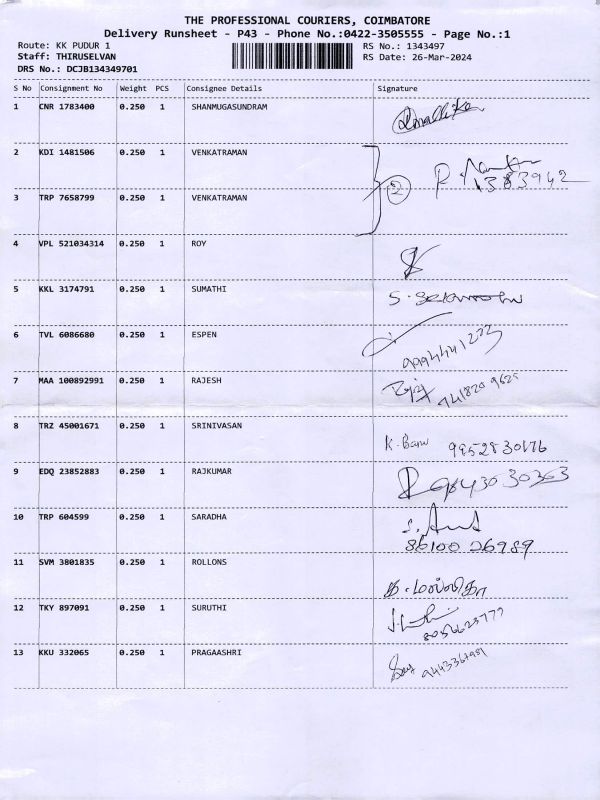 THE PROFESSIONAL COURIERS, COIMBATORE
Delivery Runsheet - P43 - Phone No.:0422-3505555 - Page No.:1
Route: KK PUDUR 1 RS No.: 1343497
Staff: THIRUSELVAN RS Date: 26-Mar-2024
DRS No.: DCJB134349701
S No Consignment No Weight PCS Consignee Details Signature
1 CNR 1783400 0.250 1 SHANMUGASUNDRAM
2 KDI 1481506 0.250 1 VENKATRAMAN
2 1383942
3 TRP 7658799 0.250 1 VENKATRAMAN
4 VPL 521034314 0.250 1 ROY
5 KKL 3174791 0.250 1 SUMATHI
6 TVL 6086680 0.250 1 ESPEN
7 MAA 100892991 0.250 1 RAJESH
8 TRZ 45001671 0.250 1 SRINIVASAN
K. Banu
9 EDQ 23852883 0.250 1 RAJKUMAR
9843030363
10 TRP 604599 0.250 1 SARADHA
86100 26989
11 SVM 3801835 0.250 1 ROLLONS
க. மல்லிகா
12 TKY 897091 0.250 1 SURUTHI
8056623777
13 KKU 332065 0.250 1 PRAGAASHRI